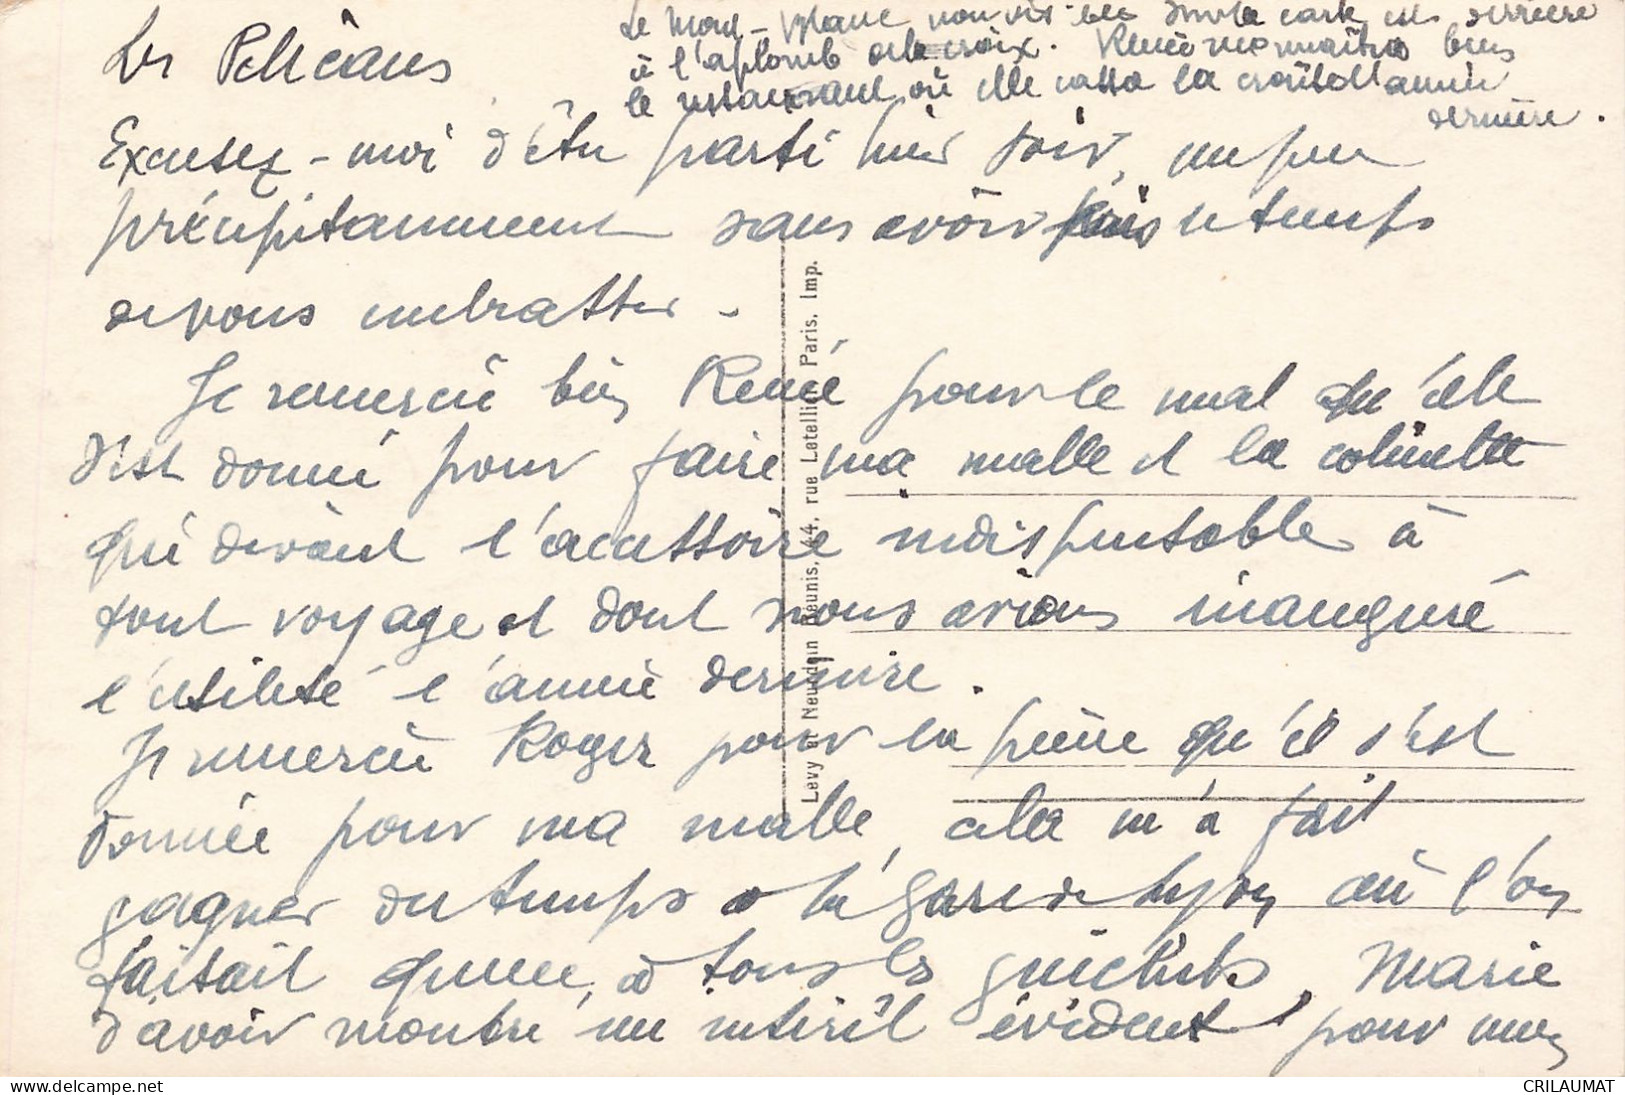 Les Pelicans
Le Mont-Blanc non visible sur la carte est derrière
à l'aplomb de la croix. Renée reconnaitra bien
le restaurant où elle cassa la croûte l'année
dernière.
Excusez-moi d'être parti hier soir, un peu
précipitamment sans avoir pris le temps
de vous embrasser.
Je remercie bien Renée pour le mal qu'elle
s'est donné pour faire ma malle et la
qui devient l'accessoire indispensable à
tout voyage et dont nous avions inauguré
l'utilité l'année dernière.
Je remercie Roger pour la peine qu'il s'est
donnée pour ma malle, cela m'a fait
gagner du temps à la gare de Lyon où l'on
faisait queue, à tous les guichets, Marie
d'avoir montré un intérêt évident pour mon
Levy et Neurdein Réunis, 44, rue Letellier, Paris. Imp.
CRILAUMAT